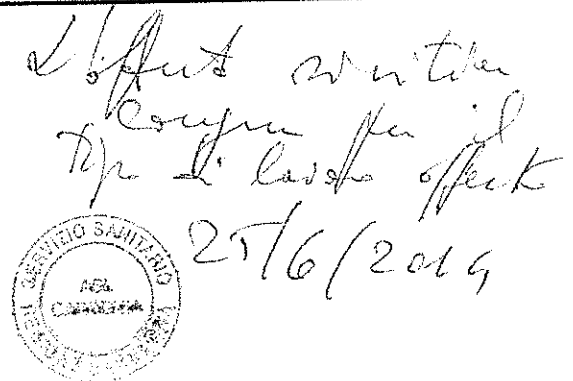 L'offerta risulta
congrua per il
tipo di lavoro offerto
25/6/2019
SERVIZIO SANITARIO
ASL